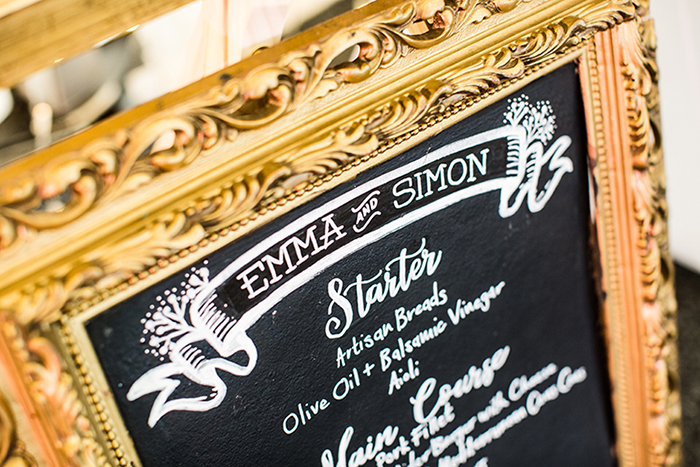 EMMA AND SIMON
Starter
Artisan Breads
Olive Oil + Balsamic Vinegar
Aioli
Main Course
Pork Fillet
Burger with Cheese
Mediterranean Cous Cous